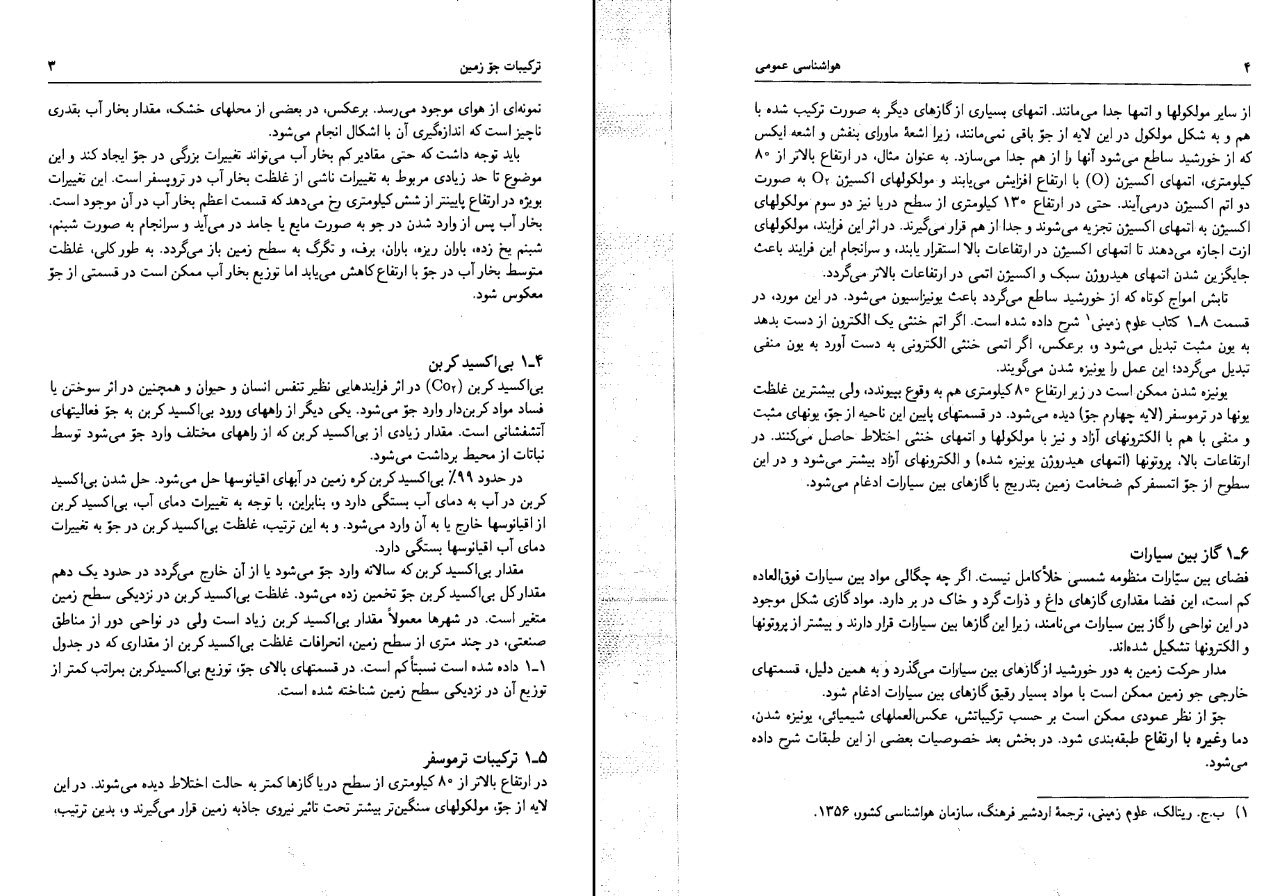 ترکیبات جوّ زمین ۳
نمونه‌ای از هوای موجود می‌رسد. برعکس، در بعضی از محلهای خشک، مقدار بخار آب بقدری
ناچیز است که اندازه‌گیری آن با اشکال انجام می‌شود.
باید توجه داشت که حتی مقادیر کم بخار آب می‌تواند تغییرات بزرگی در جوّ ایجاد کند و این
موضوع تا حد زیادی مربوط به تغییرات ناشی از غلظت بخار آب در تروپسفر است. این تغییرات
بویژه در ارتفاع پایینتر از شش کیلومتری رخ می‌دهد که قسمت اعظم بخار آب در آن موجود است.
بخار آب پس از وارد شدن در جو به صورت مایع یا جامد در می‌آید و سرانجام به صورت شبنم،
شبنم یخ زده، باران ریزه، باران، برف، و تگرگ به سطح زمین باز می‌گردد. به طور کلی، غلظت
متوسط بخار آب در جوّ با ارتفاع کاهش می‌یابد اما توزیع بخار آب ممکن است در قسمتی از جوّ
معکوس شود.
۱ـ۴ بی‌اکسید کربن
بی‌اکسید کربن (Co۲) در اثر فرایندهایی نظیر تنفس انسان و حیوان و همچنین در اثر سوختن یا
فساد مواد کربن‌دار وارد جوّ می‌شود. یکی دیگر از راههای ورود بی‌اکسید کربن به جوّ فعالیتهای
آتشفشانی است. مقدار زیادی از بی‌اکسید کربن که از راههای مختلف وارد جوّ می‌شود توسط
نباتات از محیط برداشت می‌شود.
در حدود ۹۹٪ بی‌اکسید کربن کره زمین در آبهای اقیانوسها حل می‌شود. حل شدن بی‌اکسید
کربن در آب به دمای آب بستگی دارد و، بنابراین، با توجه به تغییرات دمای آب، بی‌اکسید کربن
از اقیانوسها خارج یا به آن وارد می‌شود. و به این ترتیب، غلظت بی‌اکسید کربن در جوّ به تغییرات
دمای آب اقیانوسها بستگی دارد.
مقدار بی‌اکسید کربن که سالانه وارد جوّ می‌شود یا از آن خارج می‌گردد در حدود یک دهم
مقدار کل بی‌اکسید کربن جوّ تخمین زده می‌شود. غلظت بی‌اکسید کربن در نزدیکی سطح زمین
متغیر است. در شهرها معمولاً مقدار بی‌اکسید کربن زیاد است ولی در نواحی دور از مناطق
صنعتی، در چند متری از سطح زمین، انحرافات غلظت بی‌اکسید کربن از مقداری که در جدول
۱ـ۱ داده شده است نسبتاً کم است. در قسمتهای بالای جوّ، توزیع بی‌اکسیدکربن بمراتب کمتر از
توزیع آن در نزدیکی سطح زمین شناخته شده است.
۱ـ۵ ترکیبات ترموسفر
در ارتفاع بالاتر از ۸۰ کیلومتری از سطح دریا گازها کمتر به حالت اختلاط دیده می‌شوند. در این
لایه از جوّ، مولکولهای سنگین‌تر بیشتر تحت تاثیر نیروی جاذبه زمین قرار می‌گیرند و، بدین ترتیب،
۴ هواشناسی عمومی
از سایر مولکولها و اتمها جدا می‌مانند. اتمهای بسیاری از گازهای دیگر به صورت ترکیب شده با
هم و به شکل مولکول در این لایه از جوّ باقی نمی‌مانند، زیرا اشعهٔ ماورای بنفش و اشعه ایکس
که از خورشید ساطع می‌شود آنها را از هم جدا می‌سازد. به عنوان مثال، در ارتفاع بالاتر از ۸۰
کیلومتری، اتمهای اکسیژن (O) با ارتفاع افزایش می‌یابند و مولکولهای اکسیژن O۲ به صورت
دو اتم اکسیژن درمی‌آیند. حتی در ارتفاع ۱۳۰ کیلومتری از سطح دریا نیز دو سوم مولکولهای
اکسیژن به اتمهای اکسیژن تجزیه می‌شوند و جدا از هم قرار می‌گیرند. در اثر این فرایند، مولکولهای
ازت اجازه می‌دهند تا اتمهای اکسیژن در ارتفاعات بالا استقرار یابند، و سرانجام این فرایند باعث
جایگزین شدن اتمهای هیدروژن سبک و اکسیژن اتمی در ارتفاعات بالاتر می‌گردد.
تابش امواج کوتاه که از خورشید ساطع می‌گردد باعث یونیزاسیون می‌شود. در این مورد، در
قسمت ۸ـ۱ کتاب علوم زمینی۱ شرح داده شده است. اگر اتم خنثی یک الکترون از دست بدهد
به یون مثبت تبدیل می‌شود و، برعکس، اگر اتمی خنثی الکترونی به دست آورد به یون منفی
تبدیل می‌گردد؛ این عمل را یونیزه شدن می‌گویند.
یونیزه شدن ممکن است در زیر ارتفاع ۸۰ کیلومتری هم به وقوع بپیوندد، ولی بیشترین غلظت
یونها در ترموسفر (لایه چهارم جوّ) دیده می‌شود. در قسمتهای پایین این ناحیه از جوّ، یونهای مثبت
و منفی با هم با الکترونهای آزاد و نیز با مولکولها و اتمهای خنثی اختلاط حاصل می‌کنند. در
ارتفاعات بالا، پروتونها (اتمهای هیدروژن یونیزه شده) و الکترونهای آزاد بیشتر می‌شود و در این
سطوح از جوّ اتمسفر کم ضخامت زمین بتدریج با گازهای بین سیارات ادغام می‌شود.
۱ـ۶ گاز بین سیارات
فضای بین سیّارات منظومه شمسی خلأ کامل نیست. اگر چه چگالی مواد بین سیارات فوق‌العاده
کم است، این فضا مقداری گازهای داغ و ذرات گرد و خاک در بر دارد. مواد گازی شکل موجود
در این نواحی را گاز بین سیارات می‌نامند، زیرا این گازها بین سیارات قرار دارند و بیشتر از پروتونها
و الکترونها تشکیل شده‌اند.
مدار حرکت زمین به دور خورشید از گازهای بین سیارات می‌گذرد و به همین دلیل، قسمتهای
خارجی جو زمین ممکن است با مواد بسیار رقیق گازهای بین سیارات ادغام شود.
جوّ از نظر عمودی ممکن است بر حسب ترکیباتش، عکس‌العملهای شیمیائی، یونیزه شدن،
دما وغیره با ارتفاع طبقه‌بندی شود. در بخش بعد خصوصیات بعضی از این طبقات شرح داده
می‌شود.
۱) ب.ج. ریتالک، علوم زمینی، ترجمهٔ اردشیر فرهنگ، سازمان هواشناسی کشور، ۱۳۵۶.